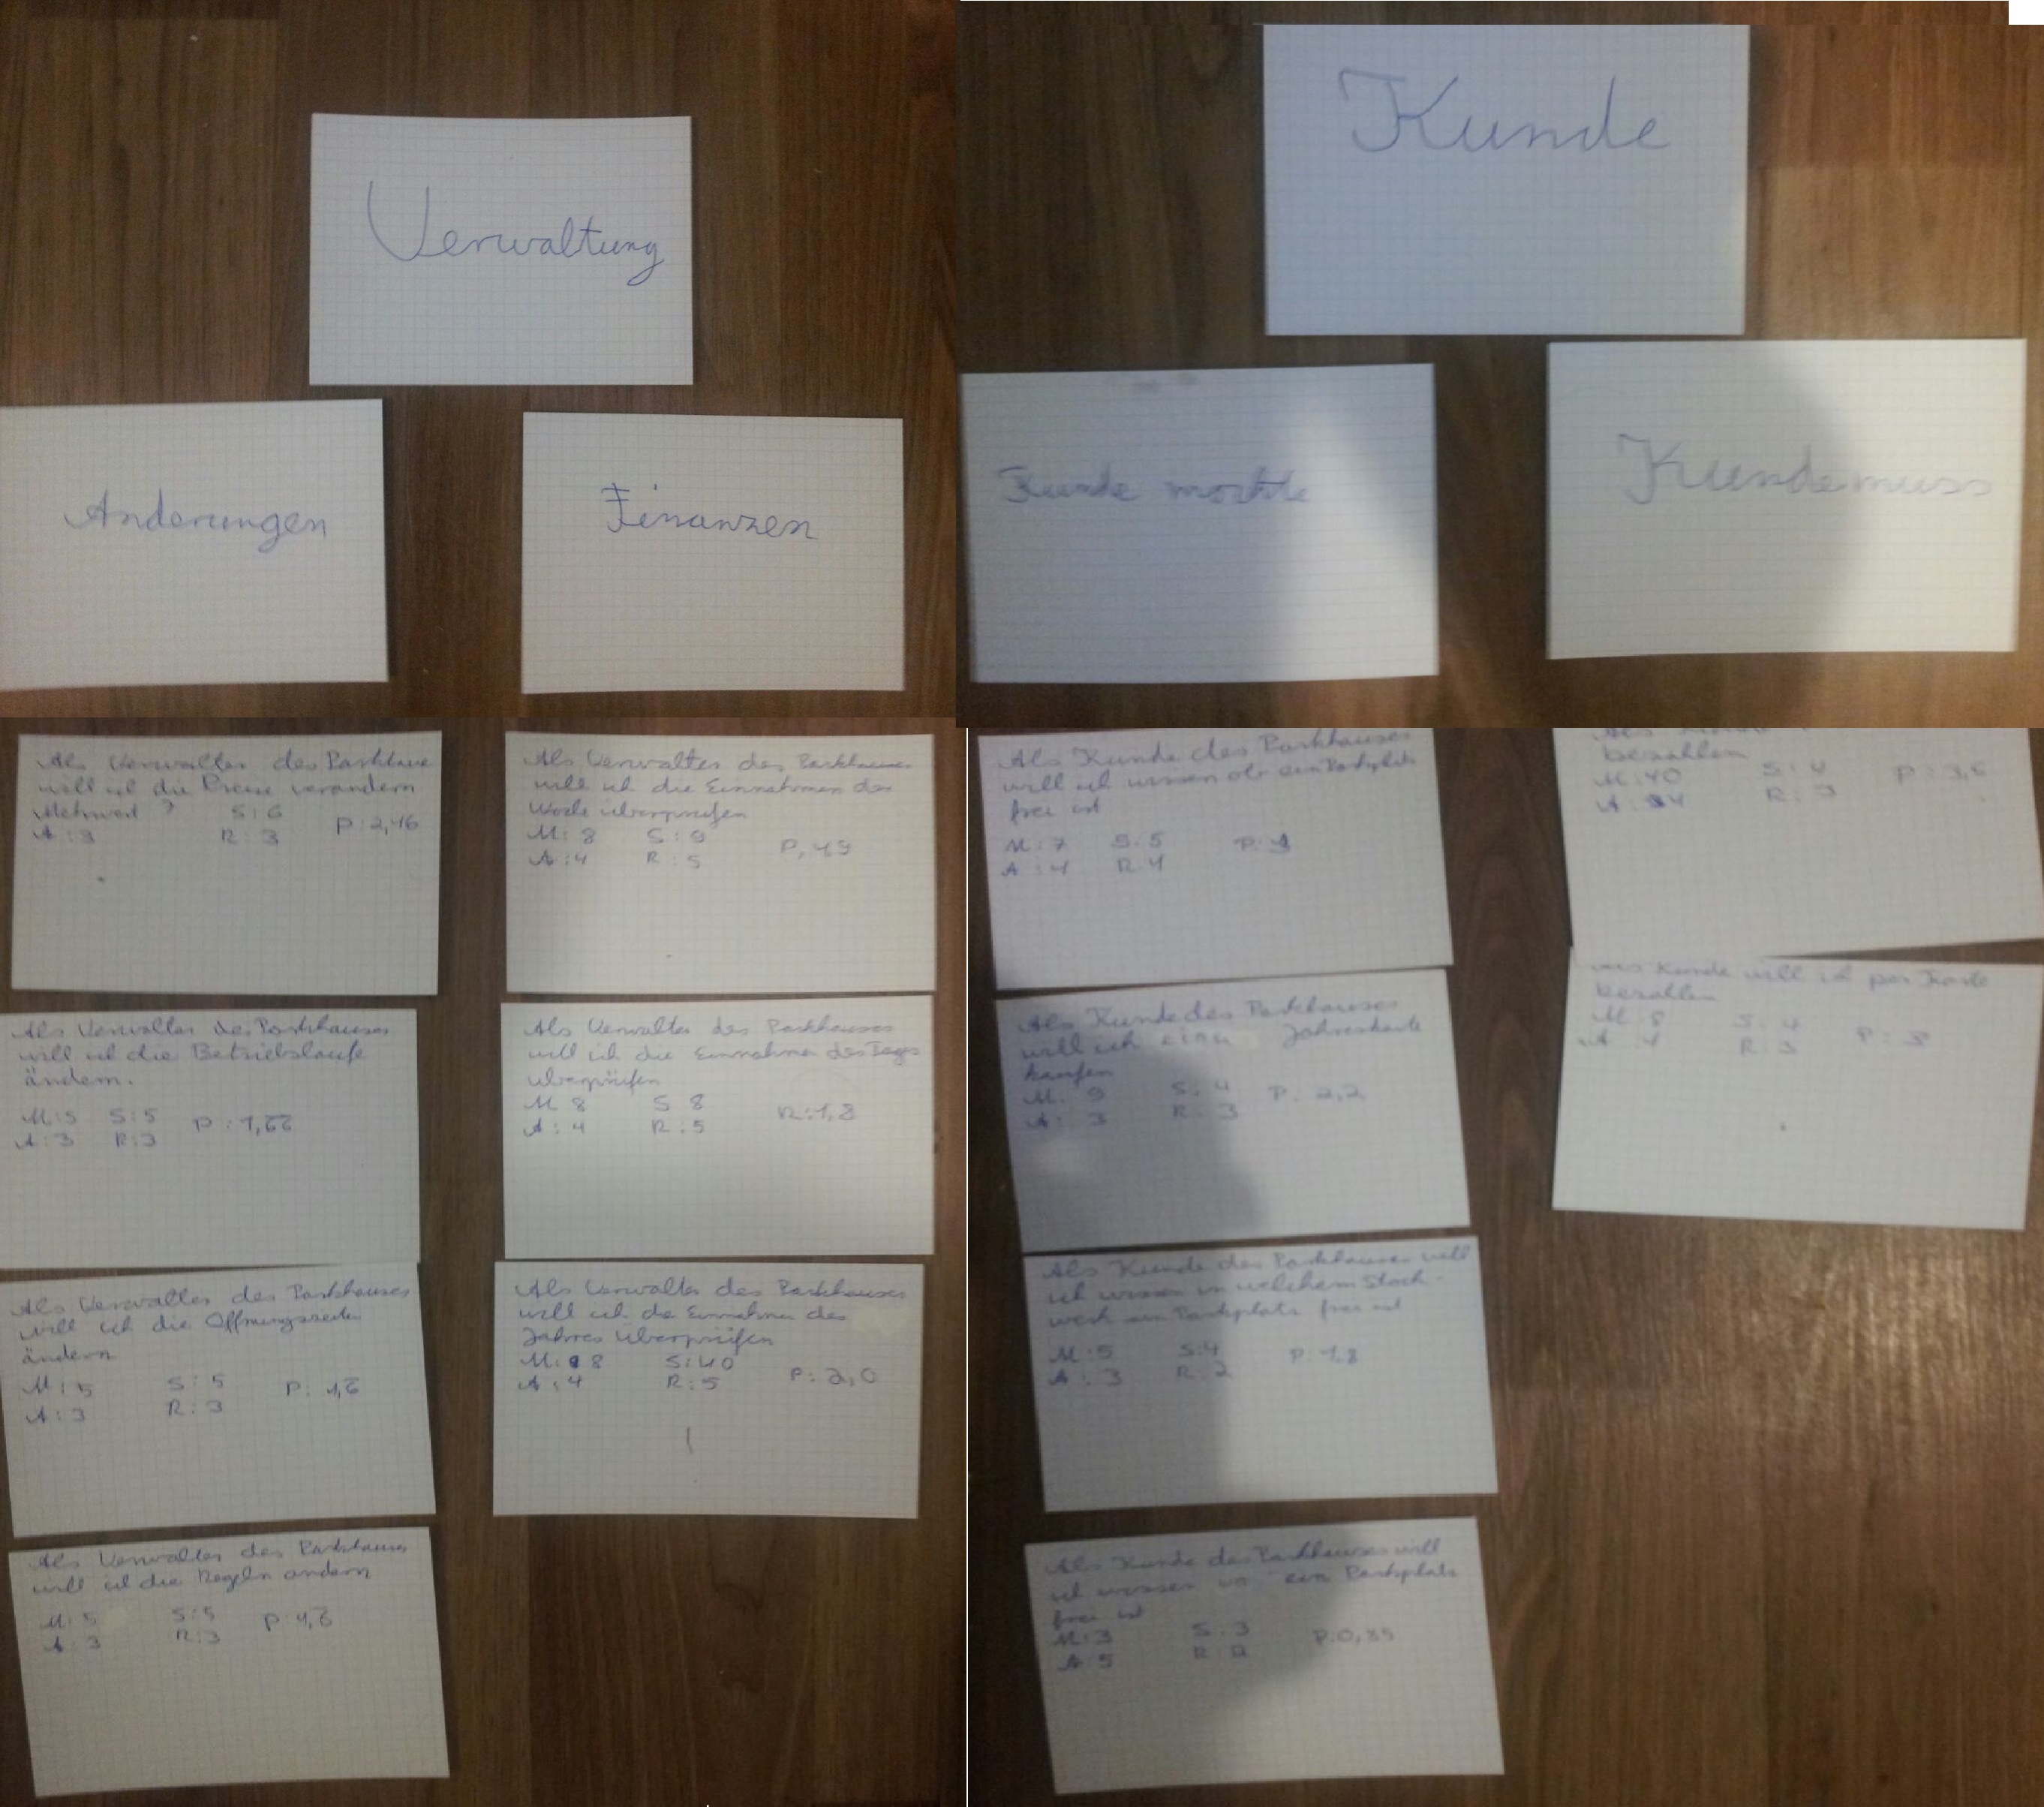 Verwaltung
Anderungen
Finanzen
Kunde
Kunde mochte
Kunde muss
Als Verwalter des Parkhaus
will ich die Preise verandern
Mehrwert 7 S:6 P:2,16
A:3 R:3
Als Verwalter des Parkhauses
will ich die Betriebslaufe
ändern.
M:5 S:5 P:1,66
A:3 R:3
Als Verwalter des Parkhauses
will ich die Offnungszeiten
ändern
M:5 S:5 P: 1,6
A:3 R:3
Als Verwalter des Parkhauses
will ich die Regeln andern
M:5 S:5 P:1,6
A:3 R:3
Als Verwalter des Parkhauses
will ich die Einnahmen der
Woche überprüfen
M:8 S:9 P, 1,9
A:4 R:5
Als Verwalter des Parkhauses
will ich die Einnahmen des Tages
überprüfen
M 8 S 8 R:1,8
A:4 R:5
Als Verwalter des Parkhauses
will ich die Einnahmen des
Jahres überprüfen
M: 8 S:10 P:2,0
A:4 R:5
Als Kunde des Parkhauses
will ich wissen ob ein Parkplatz
frei ist
M:7 S:5 P:
A:4 R:4
Als Kunde des Parkhauses
will ich eine Jahreskarte
kaufen
M: 9 S:4 P: 2,2
A: 3 R:3
Als Kunde des Parkhauses will
ich wissen in welchem Stock-
werk ein Parkplatz frei ist
M:5 S:4 P:1,8
A:3 R:2
Als Kunde des Parkhauses will
ich wissen wo ein Parkplatz
frei ist
M:3 S:3 P:0,85
A:5 R:2
bezahlen
M:10 S:4 P:3,5
A: 4 R:
Kunde will ich per Karte
bezahlen
M:8 S:4 P:3
A:4 R:3